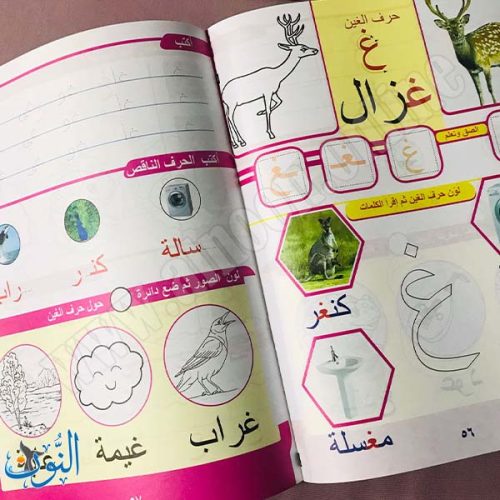 حرف الغين
غ
غزال
الصق وتعلم
غ غ ـغـ ـغ
لون حرف الغين ثم اقرأ الكلمات
غ
كنغر
مغسلة
٥٦
أكتب
أكتب الحرف الناقص
سالة
كنـ ـر
راب
لون الصور ثم ضع دائرة حول حرف الغين
غراب
غيمة
٥٧
النون